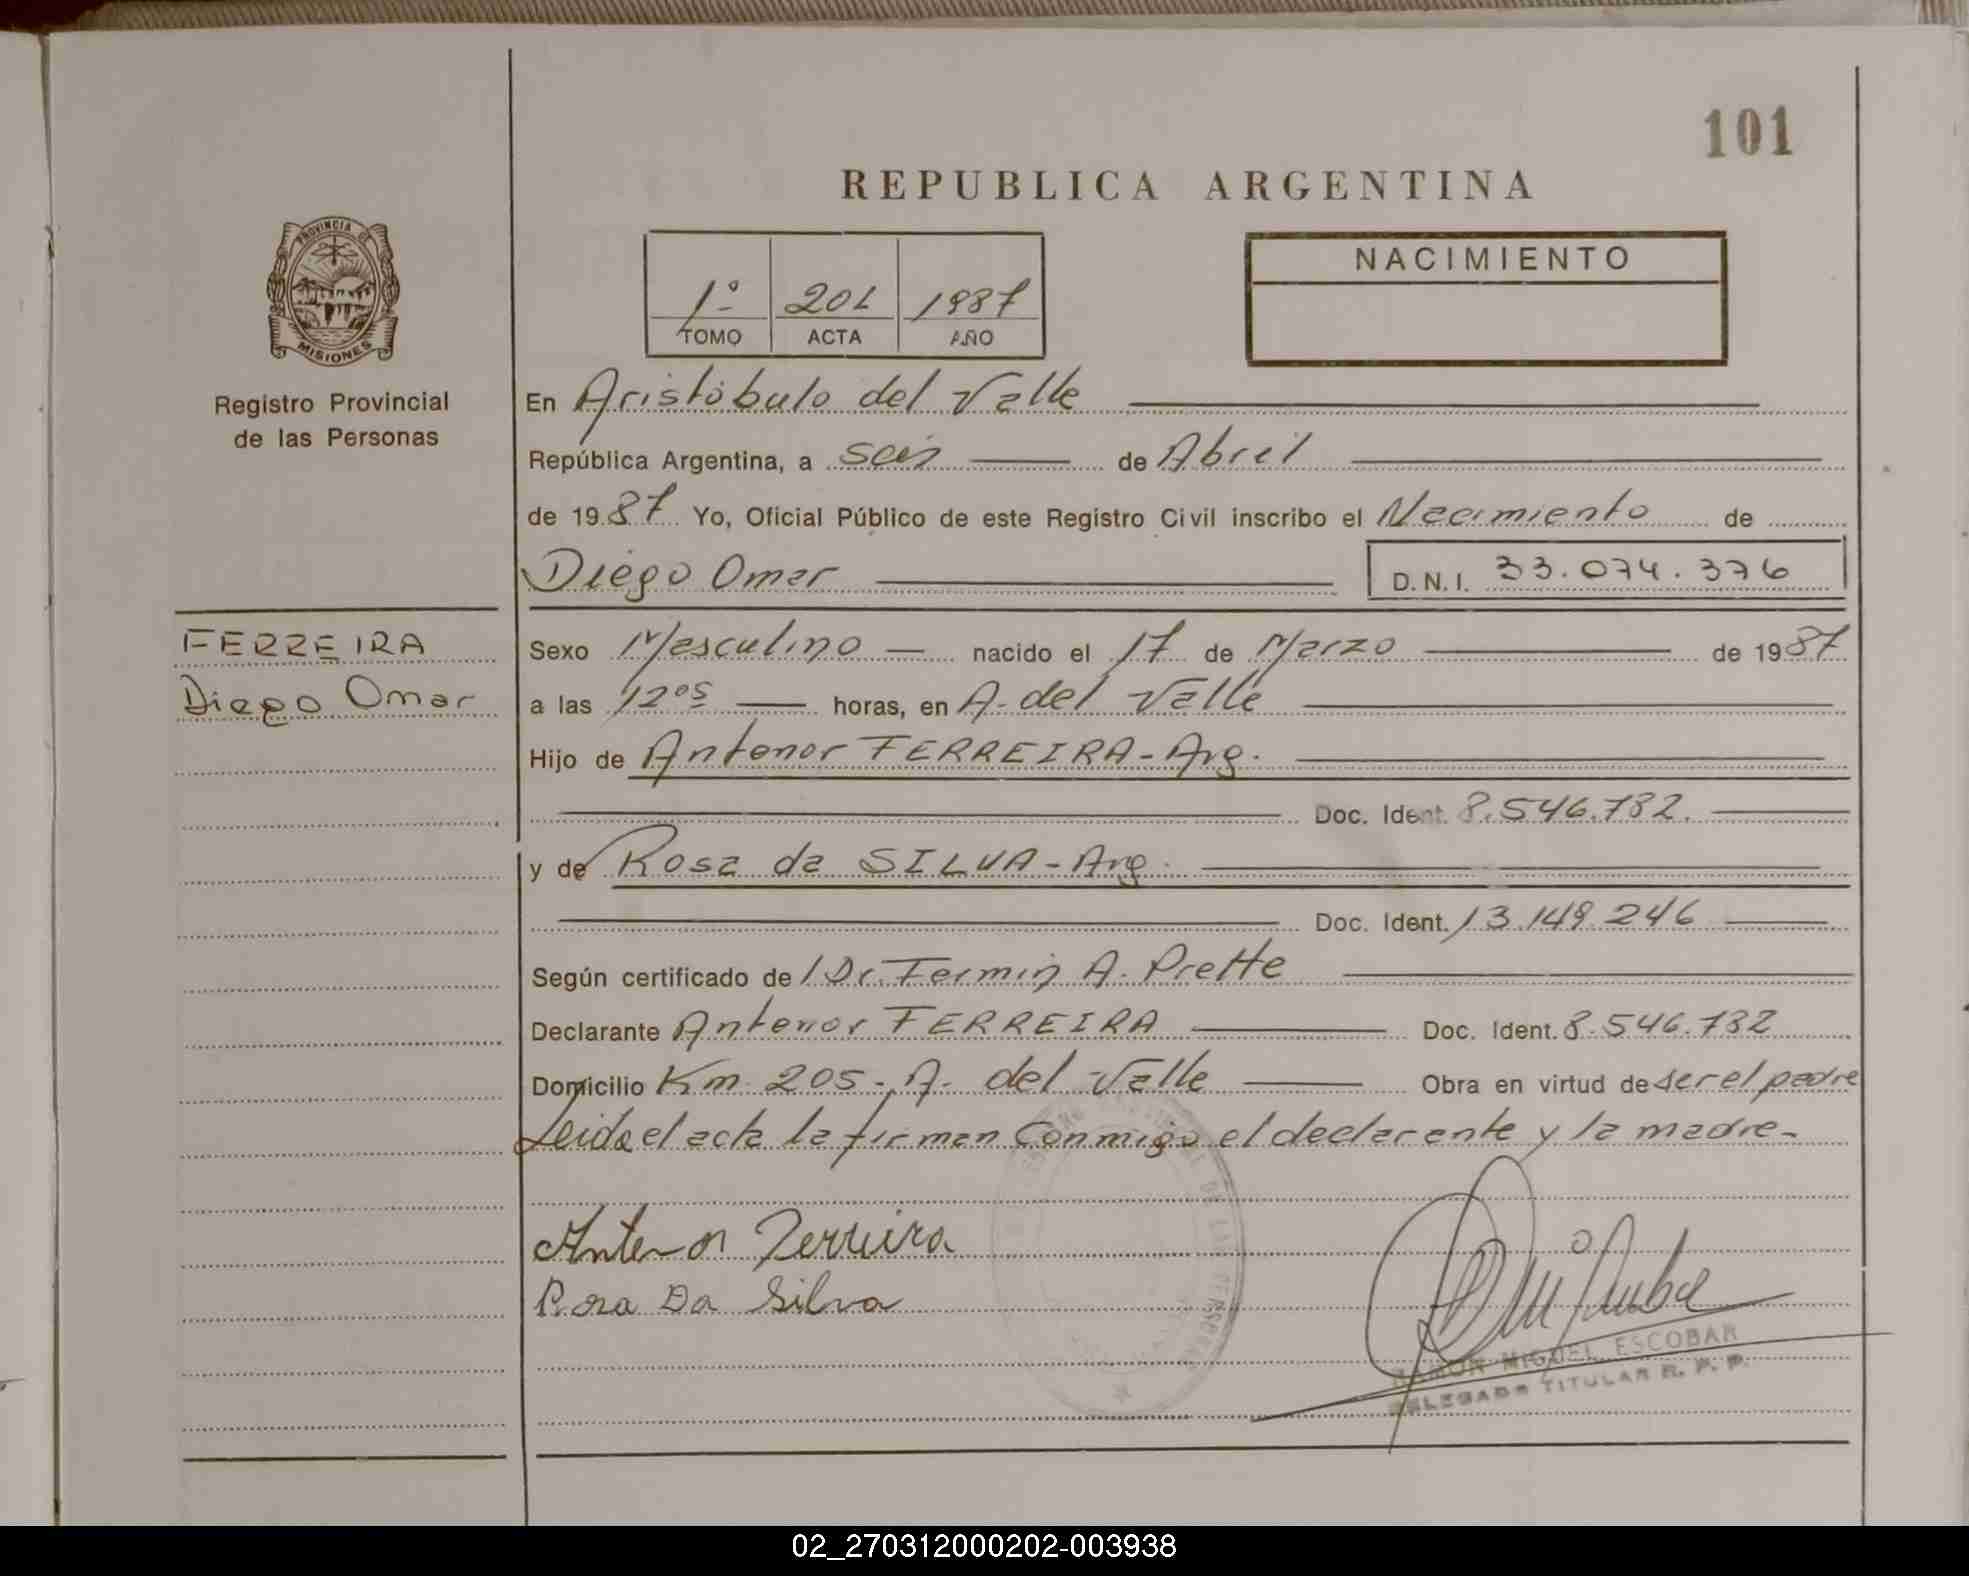 101
REPUBLICA ARGENTINA
PROVINCIA DE
MISIONES
Registro Provincial
de las Personas
1º 201 1987
TOMO ACTA AÑO
NACIMIENTO
En Aristóbulo del Valle
República Argentina, a seis de Abril
de 1987 Yo, Oficial Público de este Registro Civil inscribo el Nacimiento de
Diego Omar D.N.I. 33.074.376
FERREIRA
Diego Omar
Sexo Masculino nacido el 17 de Marzo de 1987
a las 12 05 horas, en A. del Valle
Hijo de Antenor FERREIRA - Arg.
Doc. Ident. 8.546.732.
y de Rosa da SILVA - Arg.
Doc. Ident. 13.149.246
Según certificado de / Dr. Fermin A. Prette
Declarante Antenor FERREIRA Doc. Ident. 8.546.732
Domicilio Km. 205 - A. del Valle Obra en virtud de ser el padre
Leida el acta la firman conmigo el declarante y la madre -
Antenor Ferreira
Rosa Da Silva
RAMON MIGUEL ESCOBAR
DELEGADO TITULAR R. P. P.
02_270312000202-003938